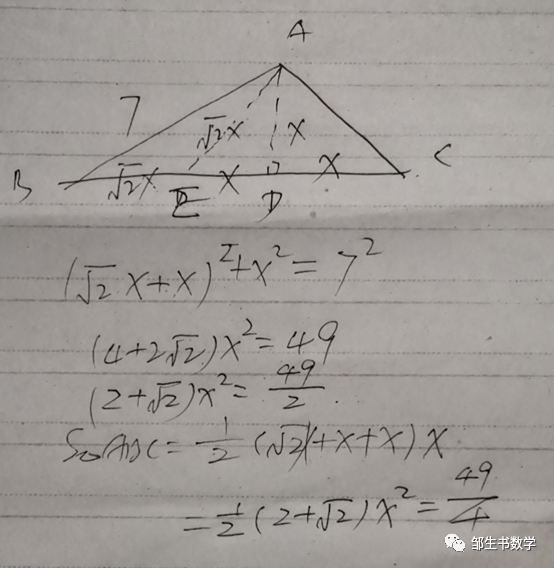 A
7
√2x
x
B
√2x
E
x
D
x
C
(√2x+x)²+x²=7²
(4+2√2)x²=49
(2+√2)x²=49/2
S△ABC=1/2(√2x+x+x)x
=1/2(2+√2)x²=49/4
邹生书数学